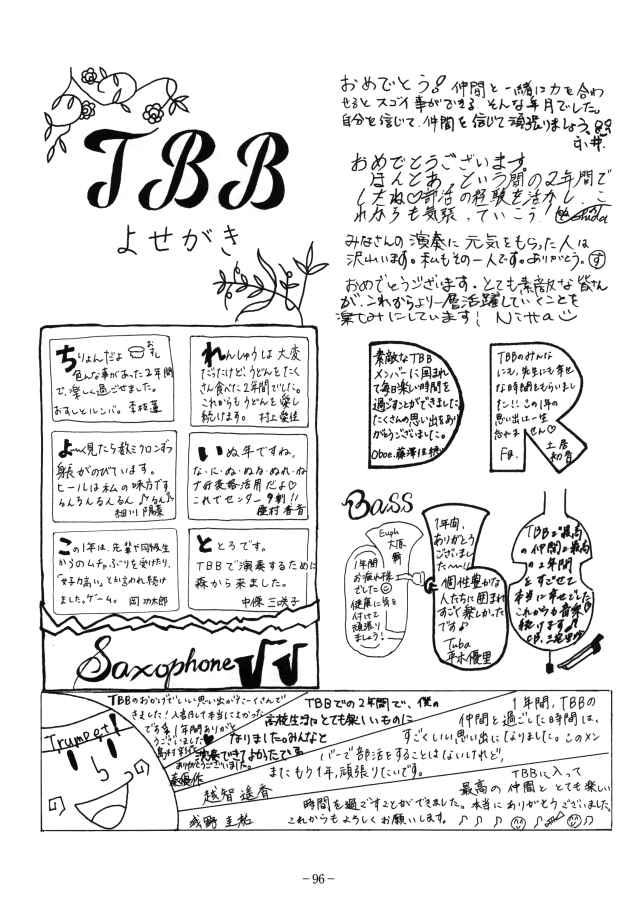 TBB
よせがき
おめでとう! 仲間と一緒に力を合わ
せるとスゴイ事ができる そんな年月でした。
自分を信じて、仲間を信じて頑張りましょう。
おめでとうございます。
ほんとあっという間の2年間で
したね♡部活の経験を活かし、こ
れからも気張っていこう!
みなさんの演奏に元気をもらった人は
沢山います。私もその一人です。ありがとう。す
おめでとうございます。とても素敵な皆さん
が、これからより一層活躍していくことを
楽しみにしています! Nitta
ちりょんだよ
色んな事があった2年間
で、楽しく過ごせました。
おすしとルンバ。
れんしゅうは大変
だったけど、うどんをたく
さん食べた2年間でした。
これからもうどんを愛し
続けます。 村上愛佳
よーく見たら数ミクロンずつ
身長がのびています。
ヒールは私の味方です
るんるんるんるん♪るん♪
細川
いぬ年ですね。
な・に・ぬ・ぬる・ぬれ・ね
ナ行変格活用だよ♡
これでセンター9割!!
この1年は、先輩や同級生
からのムチャぶりを受けたり、
「女子力高い」と言われ続け
ました。ゲーム。 岡功太郎
ととろです。
TBBで演奏するために
森から来ました。
中條三咲子
Saxophone
素敵なTBB
メンバーに囲まれ
て毎日楽しい時間を
過ごすことができました。
たくさんの思い出をあり
がとうございました。
Oboe.藤澤佳穂
TBBのみんな
にも、先生にも幸せ
な時間をもらいまし
た!! この1年の
思い出は一生
忘れません♡
Fg. 土居
初音
Bass
Euph
大原
舞
1年間
お疲れ様
でした
健康に気を
付けて
頑張り
ましょう!
1年間、
ありがとう
ございまし
た〜!!
個性豊かな
人たちに囲まれ
すごく楽しかった
です♪
Tuba
平木優里
TBBで最高
の仲間と最高
の2年間
をすごせて
本当に幸せでした
これからも音楽
続けます♪
Trumpet!
TBBのおかげでいい思い出がたーくさんで
きました!入部して本当によかった
です 1年間ありがと
うございました♥
TBBでの2年間で、僕の
高校生活はとても楽しいものに
なりました。みんなと
演奏できてよかったです。
ありがとうございました。
1年間、TBBの
仲間と過ごした時間は、
すごくいい思い出になりました。このメン
バーで部活をすることはないけれど、
またもう1年、頑張りたいです。
越智遥香
TBBに入って
最高の仲間ととても楽しい
時間を過ごすことができました。本当にありがとうございました。
これからもよろしくお願いします。♪♪♪
－96－